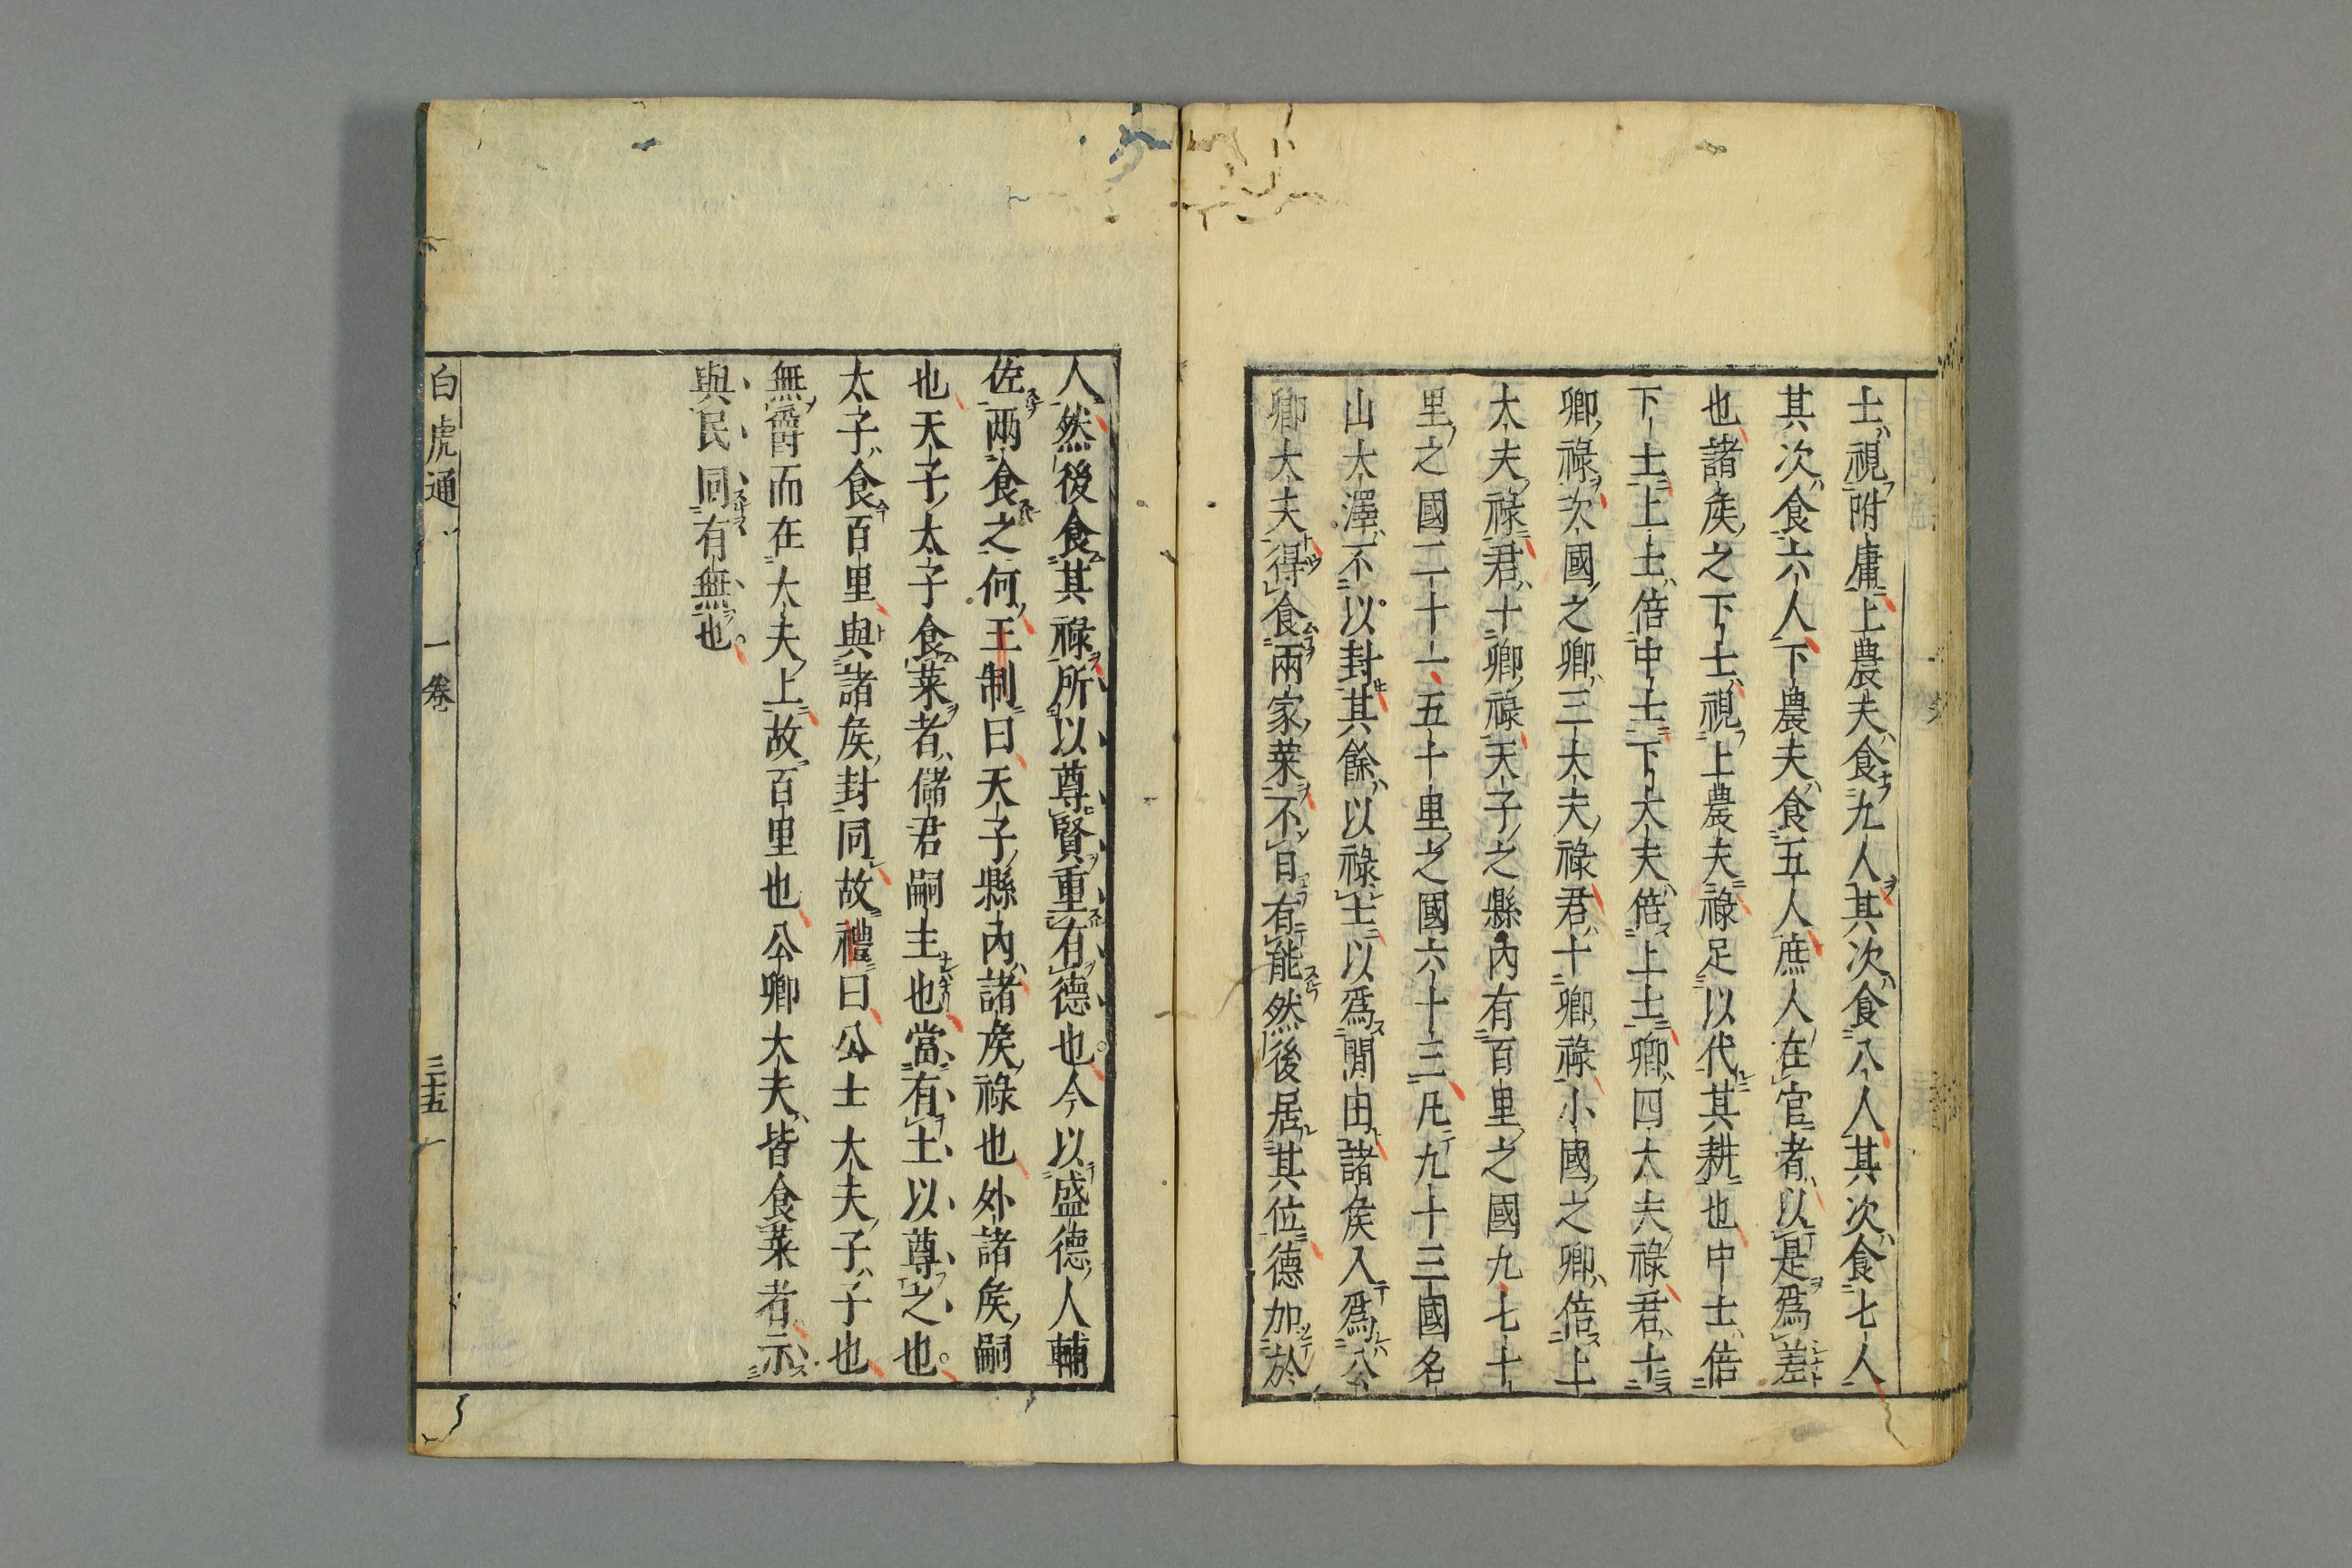 士視附庸上農夫食九人其次食八人其次食七人
其次食六人下農夫食五人庶人在官者以是爲差
也諸矦之下士視上農夫祿足以代其耕也中士倍
下士上士倍中士下大夫倍上士卿四大夫祿君十
卿祿次國之卿三大夫祿君十卿祿小國之卿倍上
大夫祿君十卿祿天子之縣內有百里之國九七十
里之國二十一五十里之國六十三凡九十三國名
山大澤不以封其餘以祿士以爲閒田諸矦入爲公
卿大夫得食兩家菜不曰有能然後居其位德加於
人然後食其祿所以尊賢重有德也今以盛德人輔
佐兩食之何王制曰天子縣內諸矦祿也外諸矦嗣
也天子太子食菜者儲君嗣主也當有土以尊之也
太子食百里與諸矦封同故禮曰公士大夫子子也
無爵而在大夫上故百里也公卿大夫皆食菜者示
與民同有無也
白虎通 一卷 三十五